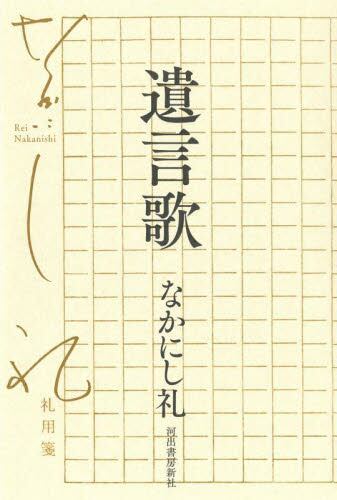 遺言歌
なかにし礼
河出書房新社
なかにし礼
Rei
Nakanishi
礼用箋